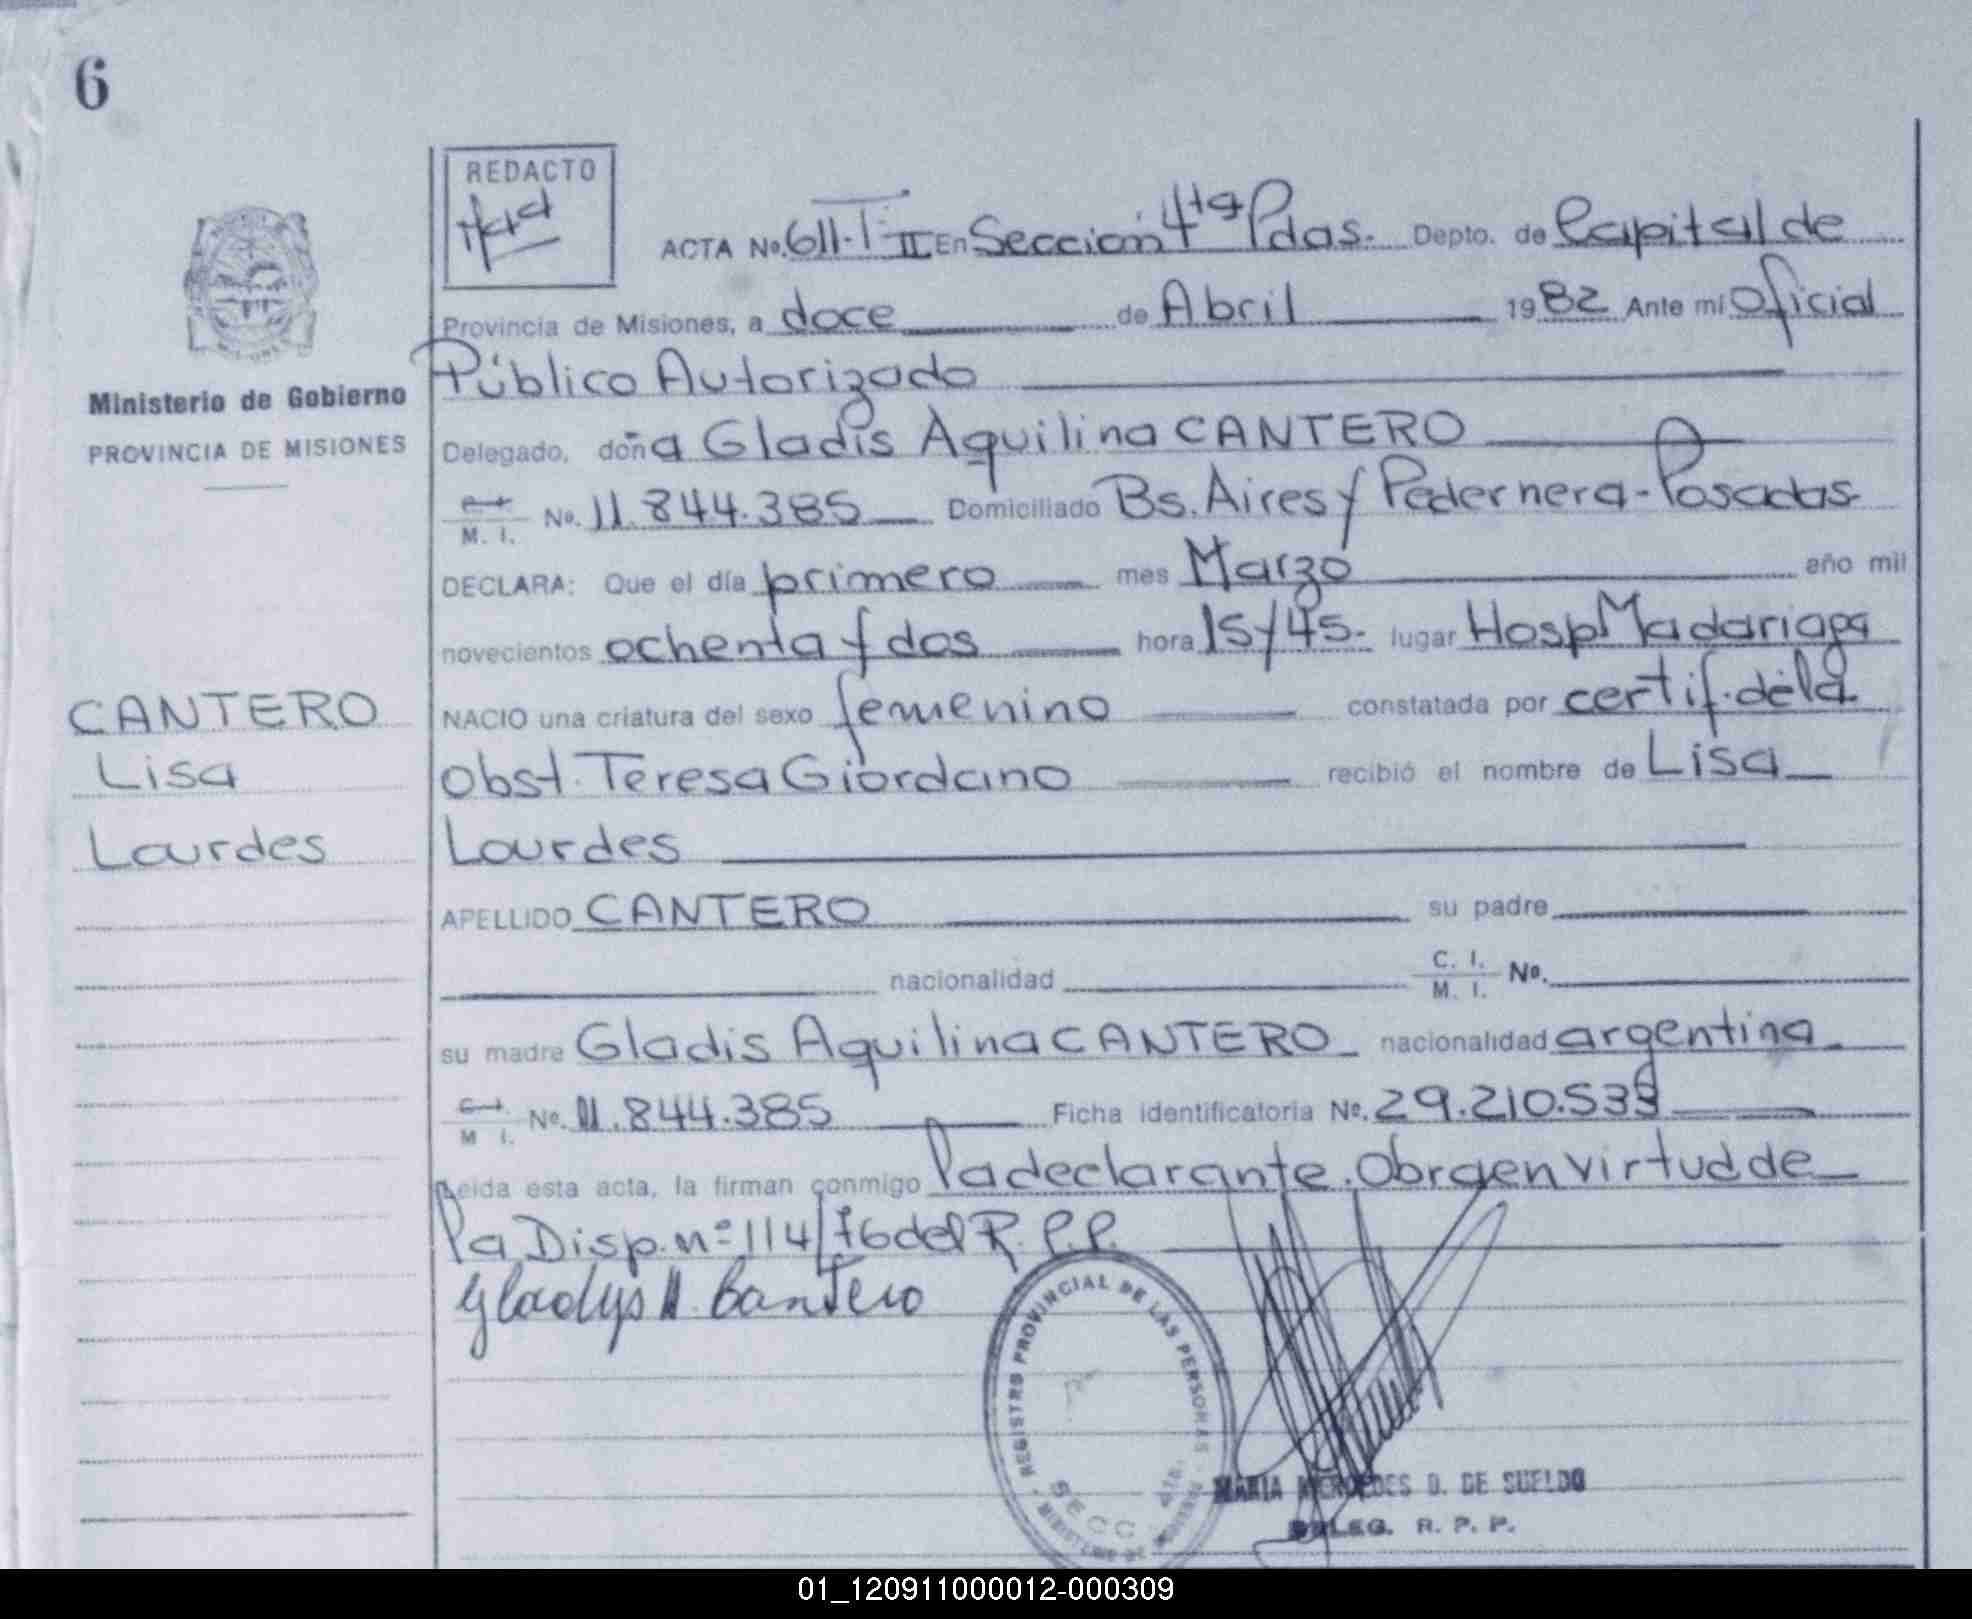 6
REDACTO
ACTA No. 611.T: II En Sección 4ta Pdas. Depto. de Capital de
Provincia de Misiones, a doce de Abril 1982 Ante mi Oficial
Público Autorizado
Ministerio de Gobierno
PROVINCIA DE MISIONES
Delegado, doña Gladis Aquilina CANTERO
M. I. No. 11.844.385 Domiciliado Bs. Aires y Pedernera - Posadas
DECLARA: Que el día primero mes Marzo año mil
novecientos ochenta y dos hora 15 y 45. lugar Hosp Madariaga
NACIO una criatura del sexo femenino constatada por certif. de la
Obst. Teresa Giordano recibió el nombre de Lisa
Lourdes
CANTERO
Lisa
Lourdes
APELLIDO CANTERO su padre
nacionalidad C. I. M. I. No.
su madre Gladis Aquilina CANTERO nacionalidad argentina
M I. No. 11.844.385 Ficha identificatoria No. 29.210.53
Leida esta acta, la firman conmigo la declarante. Obra en virtud de
la Disp. nº 114/76 del R. P. P.
Gladys A. Cantero
REGISTRO PROVINCIAL DE LAS PERSONAS
SECC. 4ta.
MARIA MERCEDES D. DE SUELDO
DELEG. R. P. P.
01_120911000012-000309